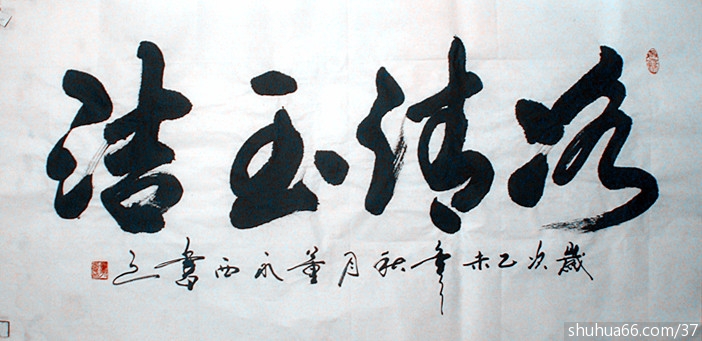 冰清玉洁
歲次乙未年秋月董永西書之
shuhua66.com/37